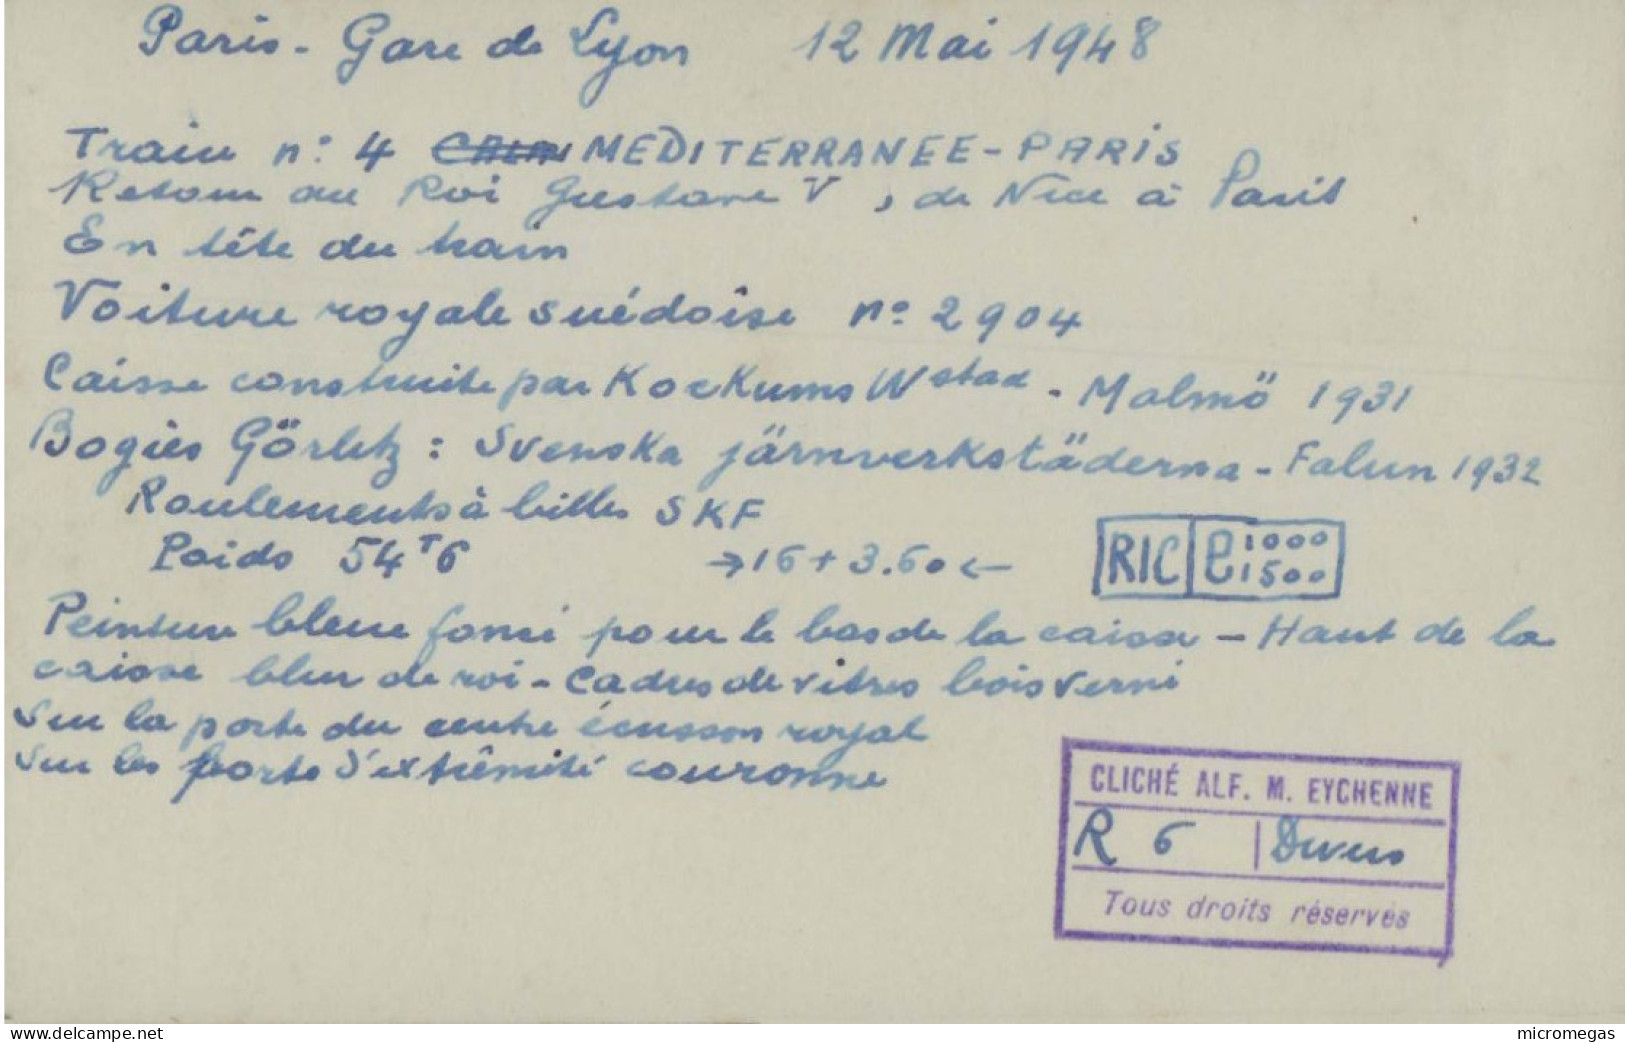 Paris - Gare de Lyon 12 Mai 1948
Train n° 4 MEDITERRANEE - PARIS
Retour du Roi Gustave V, de Nice à Paris
En tête du train
Voiture royale suédoise n° 2904
Caisse construite par Kockums Wstad - Malmö 1931
Bogies Görlitz : Svenska järnverkstäderna - Falun 1932
Roulements à billes SKF
Poids 54T6 →16+3.60← RIC e 1000 1500
Peinture bleue foncé pour le bas de la caisse - Haut de la
caisse bleu de roi - Cadres de vitres bois verni
Sur la porte du centre écusson royal
Sur les portes d'extrêmité couronne
CLICHÉ ALF. M. EYCHENNE
R 6 Divers
Tous droits réservés
www.delcampe.net micromegas